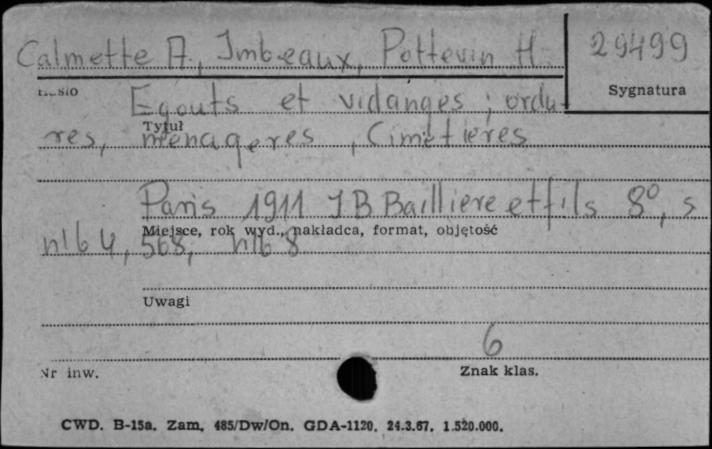 Calmette A., Imbeaux, Pottevin H. 29499
Hasło Sygnatura
Egouts et vidanges ; ordu-
Tytuł
res, menageres , Cimetieres
Paris 1911 J B Bailliere et fils 8°, s
Miejsce, rok wyd., nakładca, format, objętość
nlb 4, 568, nlb 8
Uwagi
6
Nr inw. Znak klas.
CWD. B-15a. Zam. 485/Dw/On. GDA-1120. 24.3.67. 1.520.000.